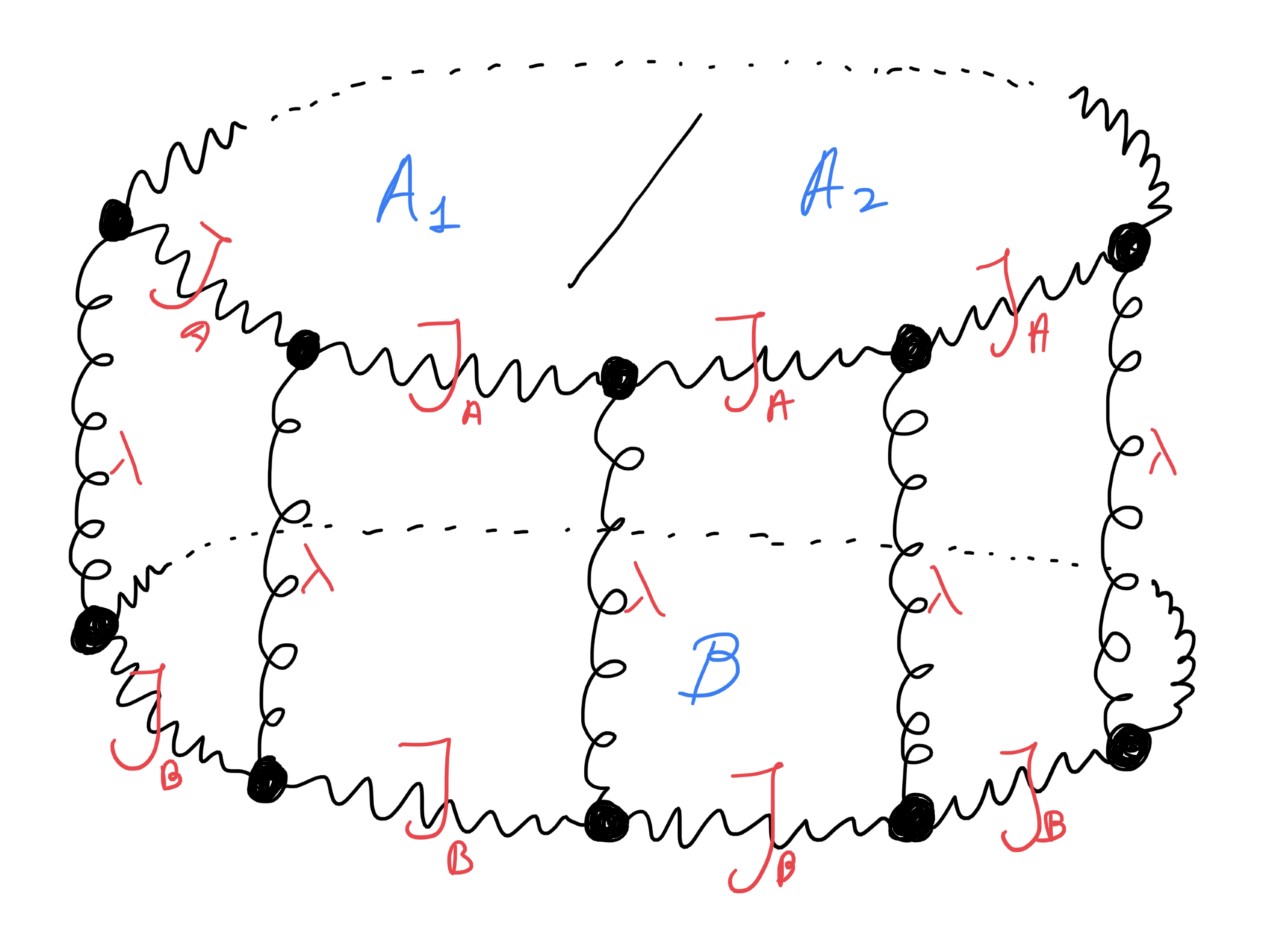 A₁
A₂
J_A
J_A
J_A
J_A
λ
λ
λ
λ
λ
B
J_B
J_B
J_B
J_B